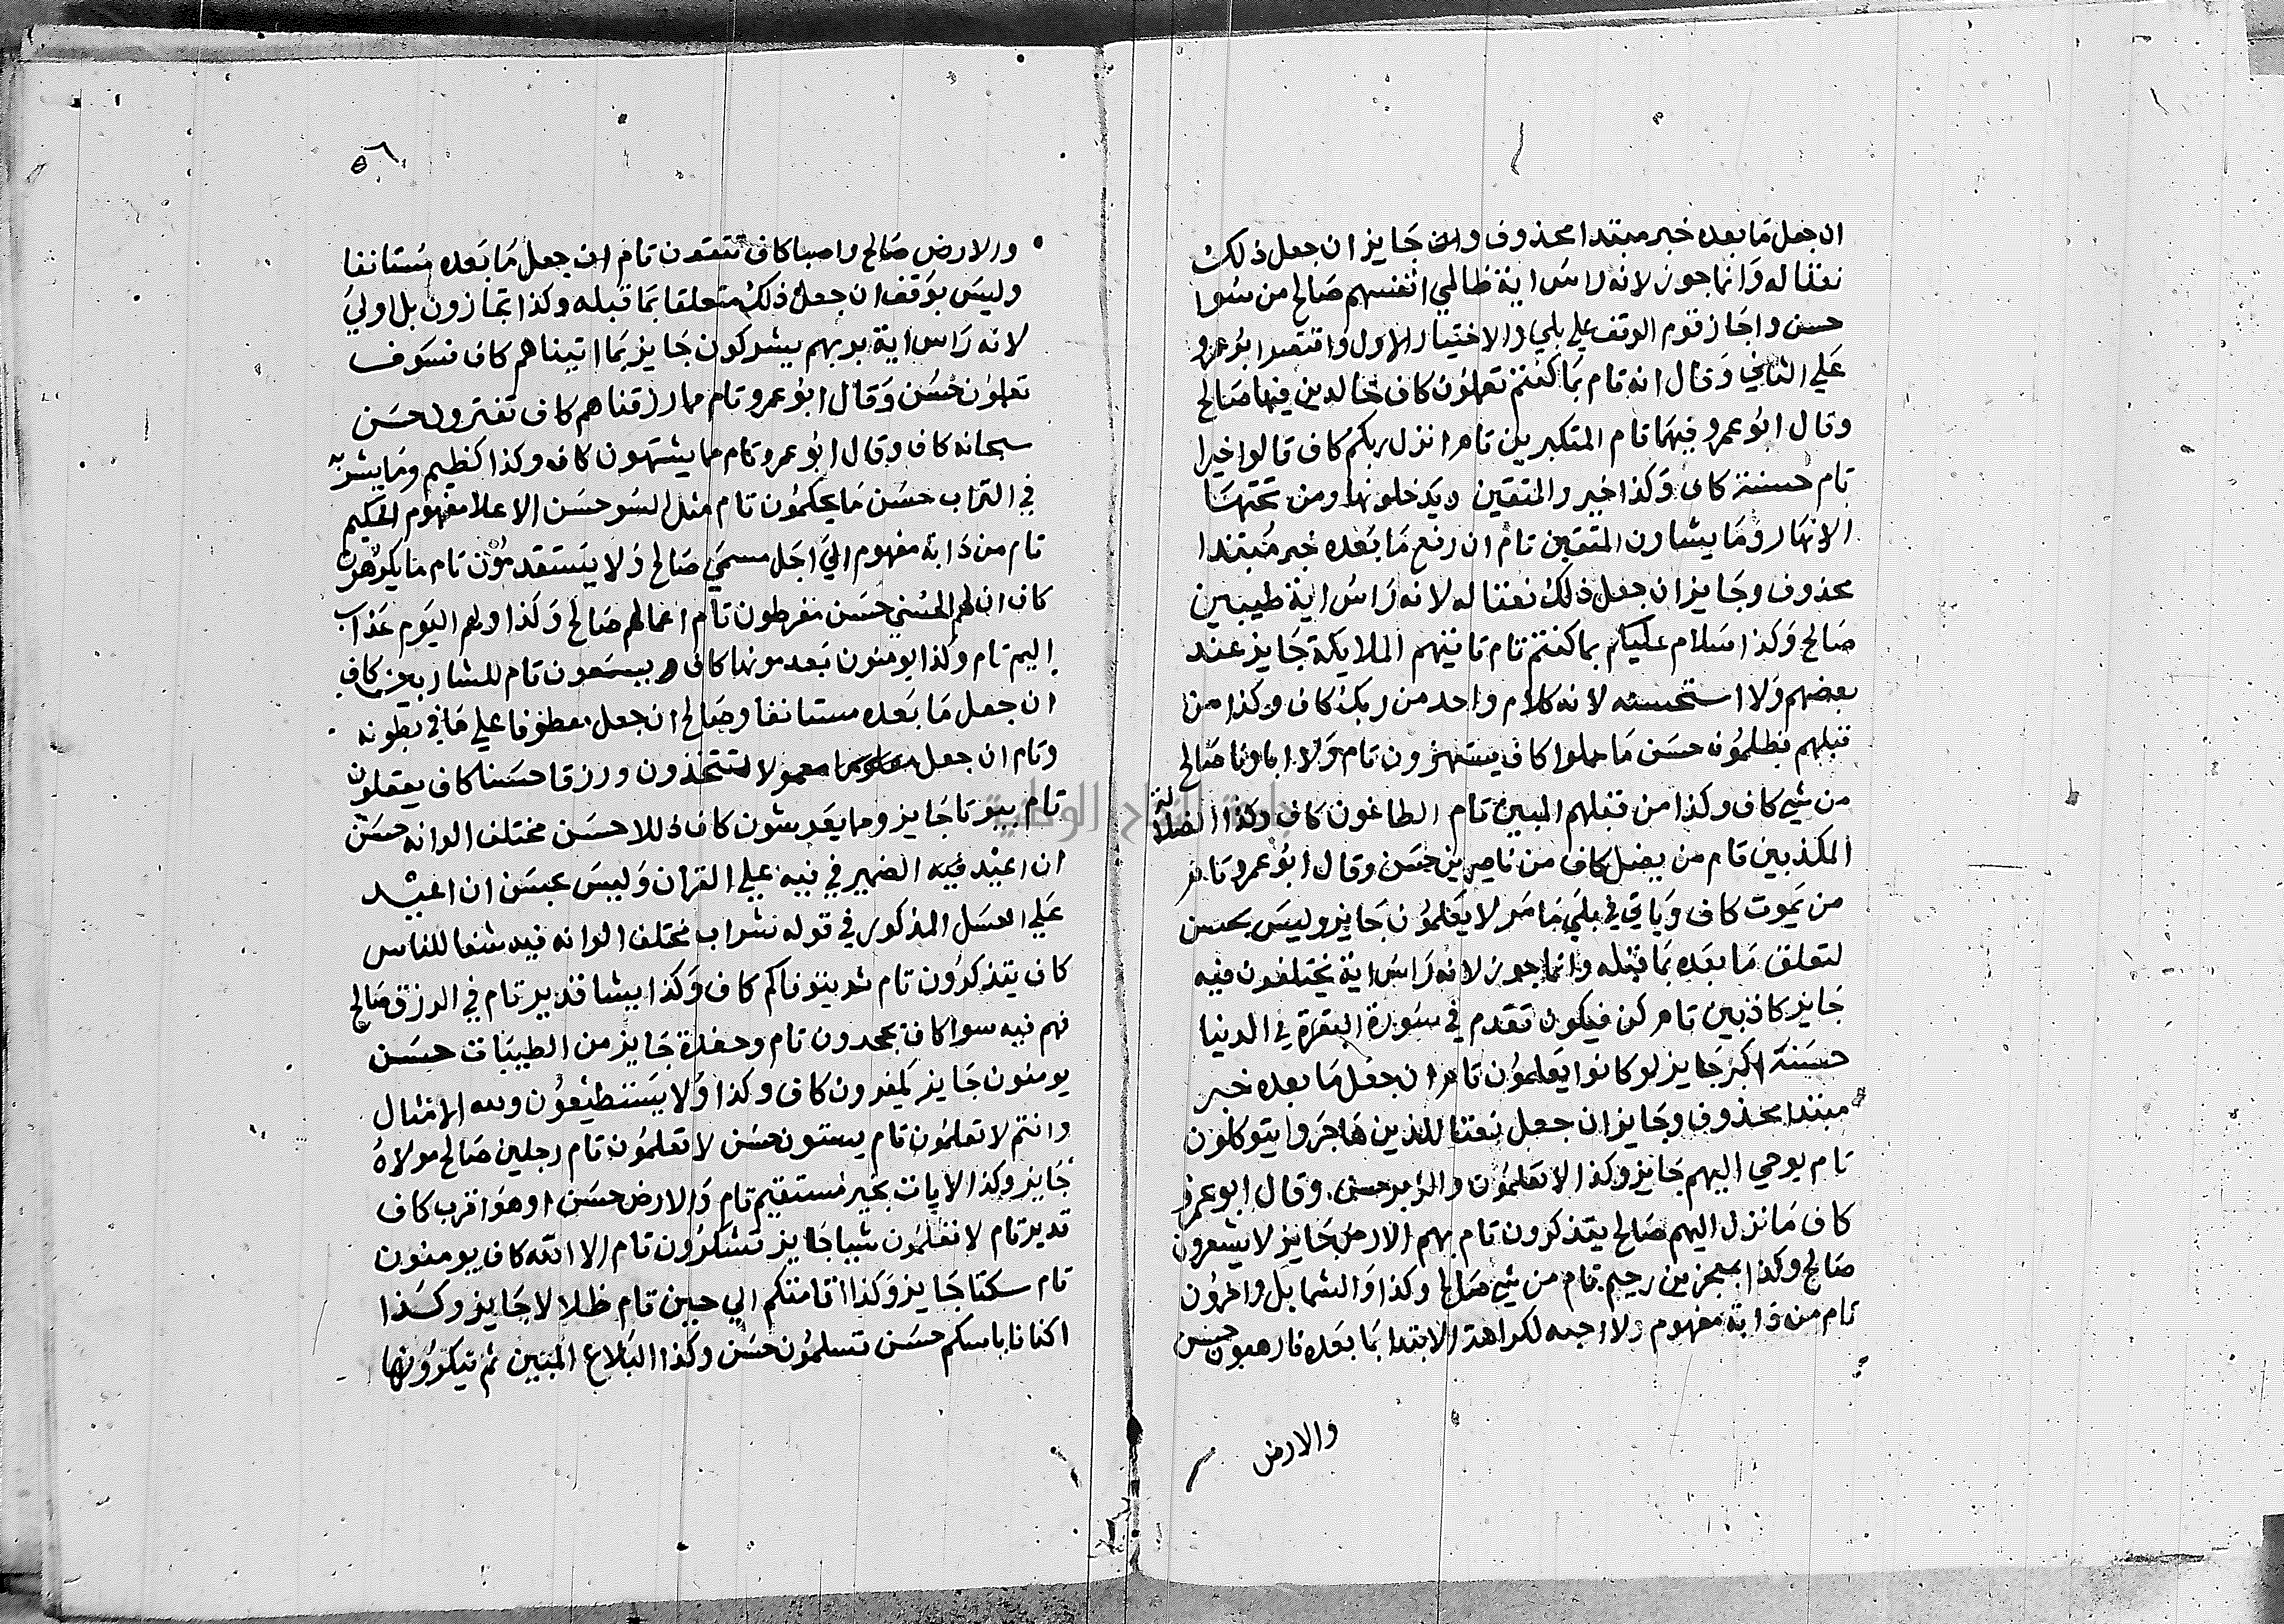 ان جعل ما بعده خبر مبتدا محذوف والا جايز ان جعل ذلك
نعتا له وانما جوز لانه راس اية ظالمي انفسهم صالح من سوا
حسن واجاز قوم الوقف علي بلي والاختيار الاول واقتصر ابو عمرو
علي الثاني وقال انه تام بما كنتم تعملون كاف خالدين فيها صالح
وقال ابو عمرو فيهما تام المتكبرين تام انزل ربكم كاف قالوا خيرا
تام حسنة كاف وكذا خير والمتقين ويدخلونها ومن تحتها
الانهار وما يشاون المتقين تام ان رفع ما بعده خبر مبتدا
محذوف وجايز ان جعل ذلك نعتا له لانه راس اية طيبين
صالح وكذا سلام عليكم بما كنتم تام تاتيهم الملايكة جايز عند
بعضهم ولا استحسنه لانه كلام واحد من ربك كاف وكذا من
قبلهم يظلمون حسن ما عملوا كاف يستهزون تام ولا اباونا صالح
من شي كاف وكذا من قبلهم المبين تام الطاغون كاف وكذا الضلالة
المكذبين تام من يضل كاف من ناصرين حسن وقال ابو عمرو تام
من يموت كاف وياتي في بلي ما مر لا يعلمون جايز وليس بحسن
لتعلق ما بعده بما قبله وانما جوز لانه راس اية يختلفون فيه
جايز كاذبين تام كن فيكون تقدم في سورة البقرة في الدنيا
حسنة اكبر جايز لو كانوا يعلمون تام ان جعل ما بعده خبر
مبتدا محذوف وجايز ان جعل نعتا للذين هاجروا يتوكلون
تام يوحي اليهم جايز وكذا لا تعلمون والزبر حسن وقال ابو عمرو
كاف ما نزل اليهم صالح يتذكرون تام بهم الارض جايز لا يشعرون
صالح وكذا بمعجزين رحيم تام من شي صالح وكذا والشمايل داخرون
تام من دابة مفهوم ولا احبه لكراهة الابتدا بما بعده فارهبون حسن
والارض
٥٦
والارض صالح واصبا كاف تتقون تام ان جعل ما بعده مستانفا
وليس بوقف ان جعل ذلك متعلقا بما قبله وكذا تجازون بل اولي
لانه راس اية بربهم يشركون جايز بما اتيناهم كاف فسوف
تعلمون حسن وقال ابو عمرو تام مما رزقناهم كاف تفترون حسن
سبحانه كاف وقال ابو عمرو تام ما يشتهون كاف وكذا كظيم وما بشر به
في التراب حسن ما يحكمون تام مثل السو حسن الاعلا مفهوم الحكيم
تام من دابة مفهوم الي اجل مسمي صالح ولا يستقدمون تام ما يكرهون
كاف ان لهم الحسني حسن مفرطون تام اعمالهم صالح وكذا وليهم اليوم عذاب
اليم تام وكذا يومنون بعد موتها كاف ويسمعون تام للشاربين كاف
ان جعل ما بعده مستانفا وصالح ان جعل معطوفا علي ما في بطونه
وتام ان جعل معمولا لتتخذون ورزقا حسنا كاف يعقلون
تام بيوتا جايز ومما يعرشون كاف ذللا حسن مختلف الوانه حسن
ان اعيد فيه الضمير في فيه علي القران وليس بحسن ان اعيد
علي العسل المذكور في قوله شراب مختلف الوانه فيه شفا للناس
كاف يتذكرون تام ثم يتوفاكم كاف وكذا شيا قدير تام في الرزق صالح
فهم فيه سوا كاف يجحدون تام وحفدة جايز من الطيبات حسن
يومنون جايز يكفرون كاف وكذا ولا يستطيعون ولله الامثال
وانتم لا تعلمون تام يستوون حسن لا تعلمون تام رجلين صالح مولاه
جايز وكذا لا يات بخير مستقيم تام والارض حسن او هو اقرب كاف
قدير تام لا تعلمون شيا جايز تشكرون تام الا الله كاف يومنون
تام سكنا جايز وكذا اقامتكم الي حين تام ظلالا جايز وكذا
اكنانا باسكم حسن تسلمون حسن وكذا البلاغ المبين ثم ينكرونها